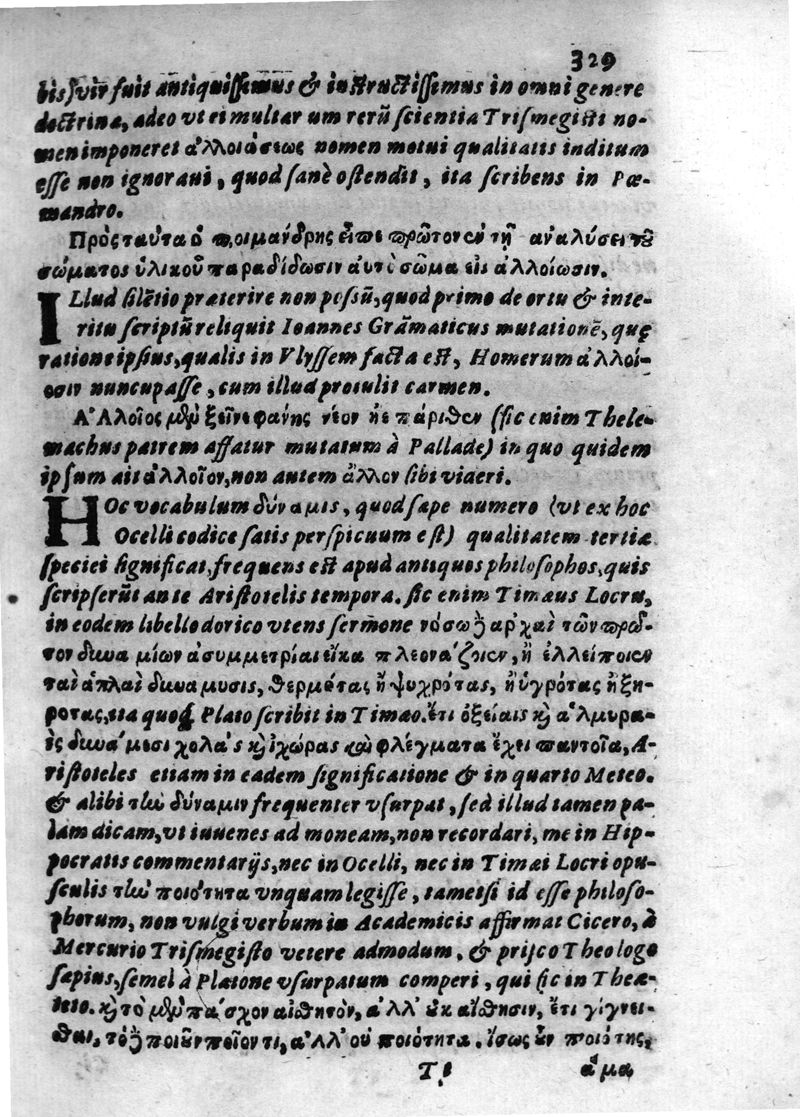 329
bis) vir fuit antiquissimus & instructissimus in omni genere
doctrina, adeo vt ei multar um rerũ scientia Trismegisti no-
men imponeret ἀλλοιάσεως nomen motui qualitatis inditum
esse non ignoraui, quod sanè ostendit, ita scribens in Pœ-
mandro.
Πρὸς ταῦτα ὁ ποιμανδρης εἶπε πρῶτον ἐν τῇ ἀναλύσει τοῦ
σώματος ὑλικοῦ παραδίδωσιν αὐτὸ σῶμα εἰς ἀλλοίωσιν.
ILlud silẽtio præterire non possũ, quod primo de ortu & inte-
ritu scriptũ reliquit Ioannes Grãmaticus mutationẽ, quę
ratione ipsius, qualis in Vlyssem facta est, Homerum ἀλλοί-
οσιν nuncupasse, cum illud protulit carmen.
Α'λλοῖος μὲν ξεῖνε φανης νέον ἠὲ πάριθεν (sic enim Thele-
machus patrem affatur mutatum à Pallade) in quo quidem
ipsum ait ἀλλοῖον, non autem ἄλλον sibi videri.
HOc vocabulum δύναμις, quod sæpe numero (vt ex hoc
Ocelli codice satis perspicuum est) qualitatem tertiæ
speciei significat, frequens est apud antiquos philosophos, quis
scripserũt ante Aristotelis tempora. sic enim Timæus Locru,
in eodem libello dorico vtens sermone νόσω δὲ ἀρχαὶ τῶν πρώ-
των δυνα μίων ἀσυμμετρίαι εἴκα πλεονάζωσιν, ἢ ἐλλείποισιν
ταὶ ἁπλαὶ δυνα μυσις, θερμότας ἢ ψυχρότας, ἢ ὑγρότας ἢ ξη-
ρότας, ita quoq Plato scribit in Timæo. ἔτι ὀξείαις καὶ ἁλμυρα-
ῖς δυνάμεσι χολὰς καὶ ἰχώρας καὶ φλέγματα ἔχει παντοῖα, A-
ristoteles etiam in eadem significatione & in quarto Meteo.
& alibi τὴν δύναμιν frequenter vsurpat, sed illud tamen pa-
lam dicam, vt iuuenes ad moneam, non recordari, me in Hip-
pocratis commentarijs, nec in Ocelli, nec in Timæi Locri opu-
sculis τὴν ποιότητα vnquam legisse, tametsi id esse philoso-
phorum, non vulgi verbum in Academicis affirmat Cicero, à
Mercurio Trismegisto vetere admodum, & prisco Theologo
sæpius, semel à Platone vsurpatum comperi, qui sic in Theæ-
teto. καὶ τὸ μὲν πάσχον αἰσθητὸν, ἀλλ' οὐκ αἴσθησιν, ἔτι γίγνει-
σθαι, τὸ δὲ ποιοῦν ποῖόν τι, ἀλλ' οὐ ποιότητα. ἴσως οὖν ποιότης,
T
ἅμα